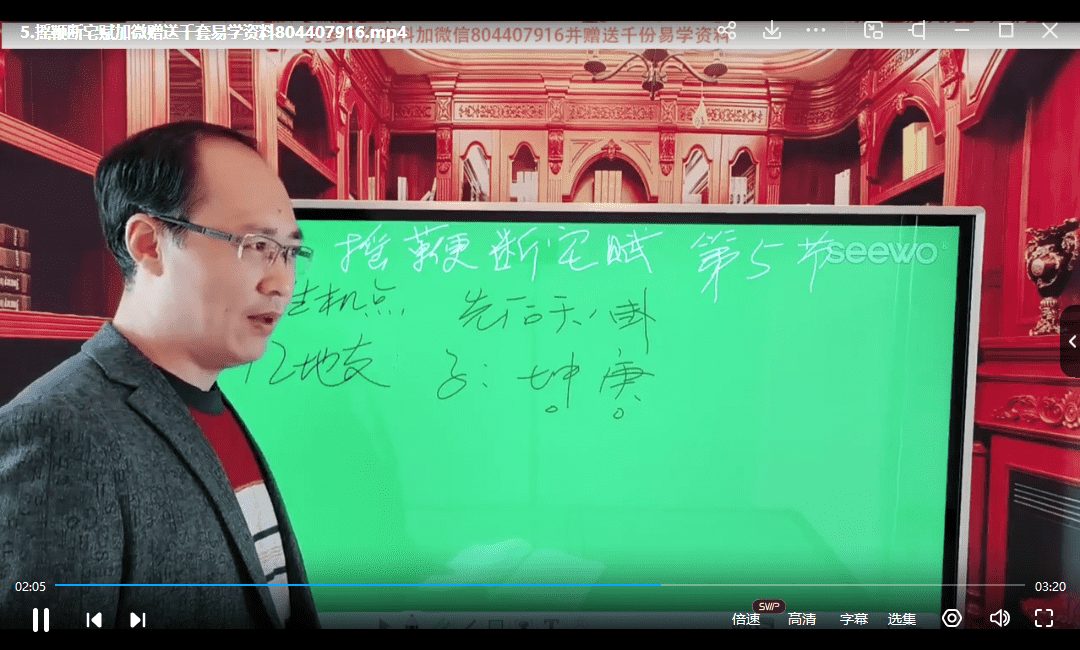 5.摇鞭断宅赋加微赠送千套易学资料804407916.mp4
资料加微信804407916并赠送千份易学资料
摇鞭断宅赋 第5节
seewo
生机点 先后天八卦
12地支 子: 坤 庚
02:05
03:20
倍速
SVIP
高清
字幕
选集